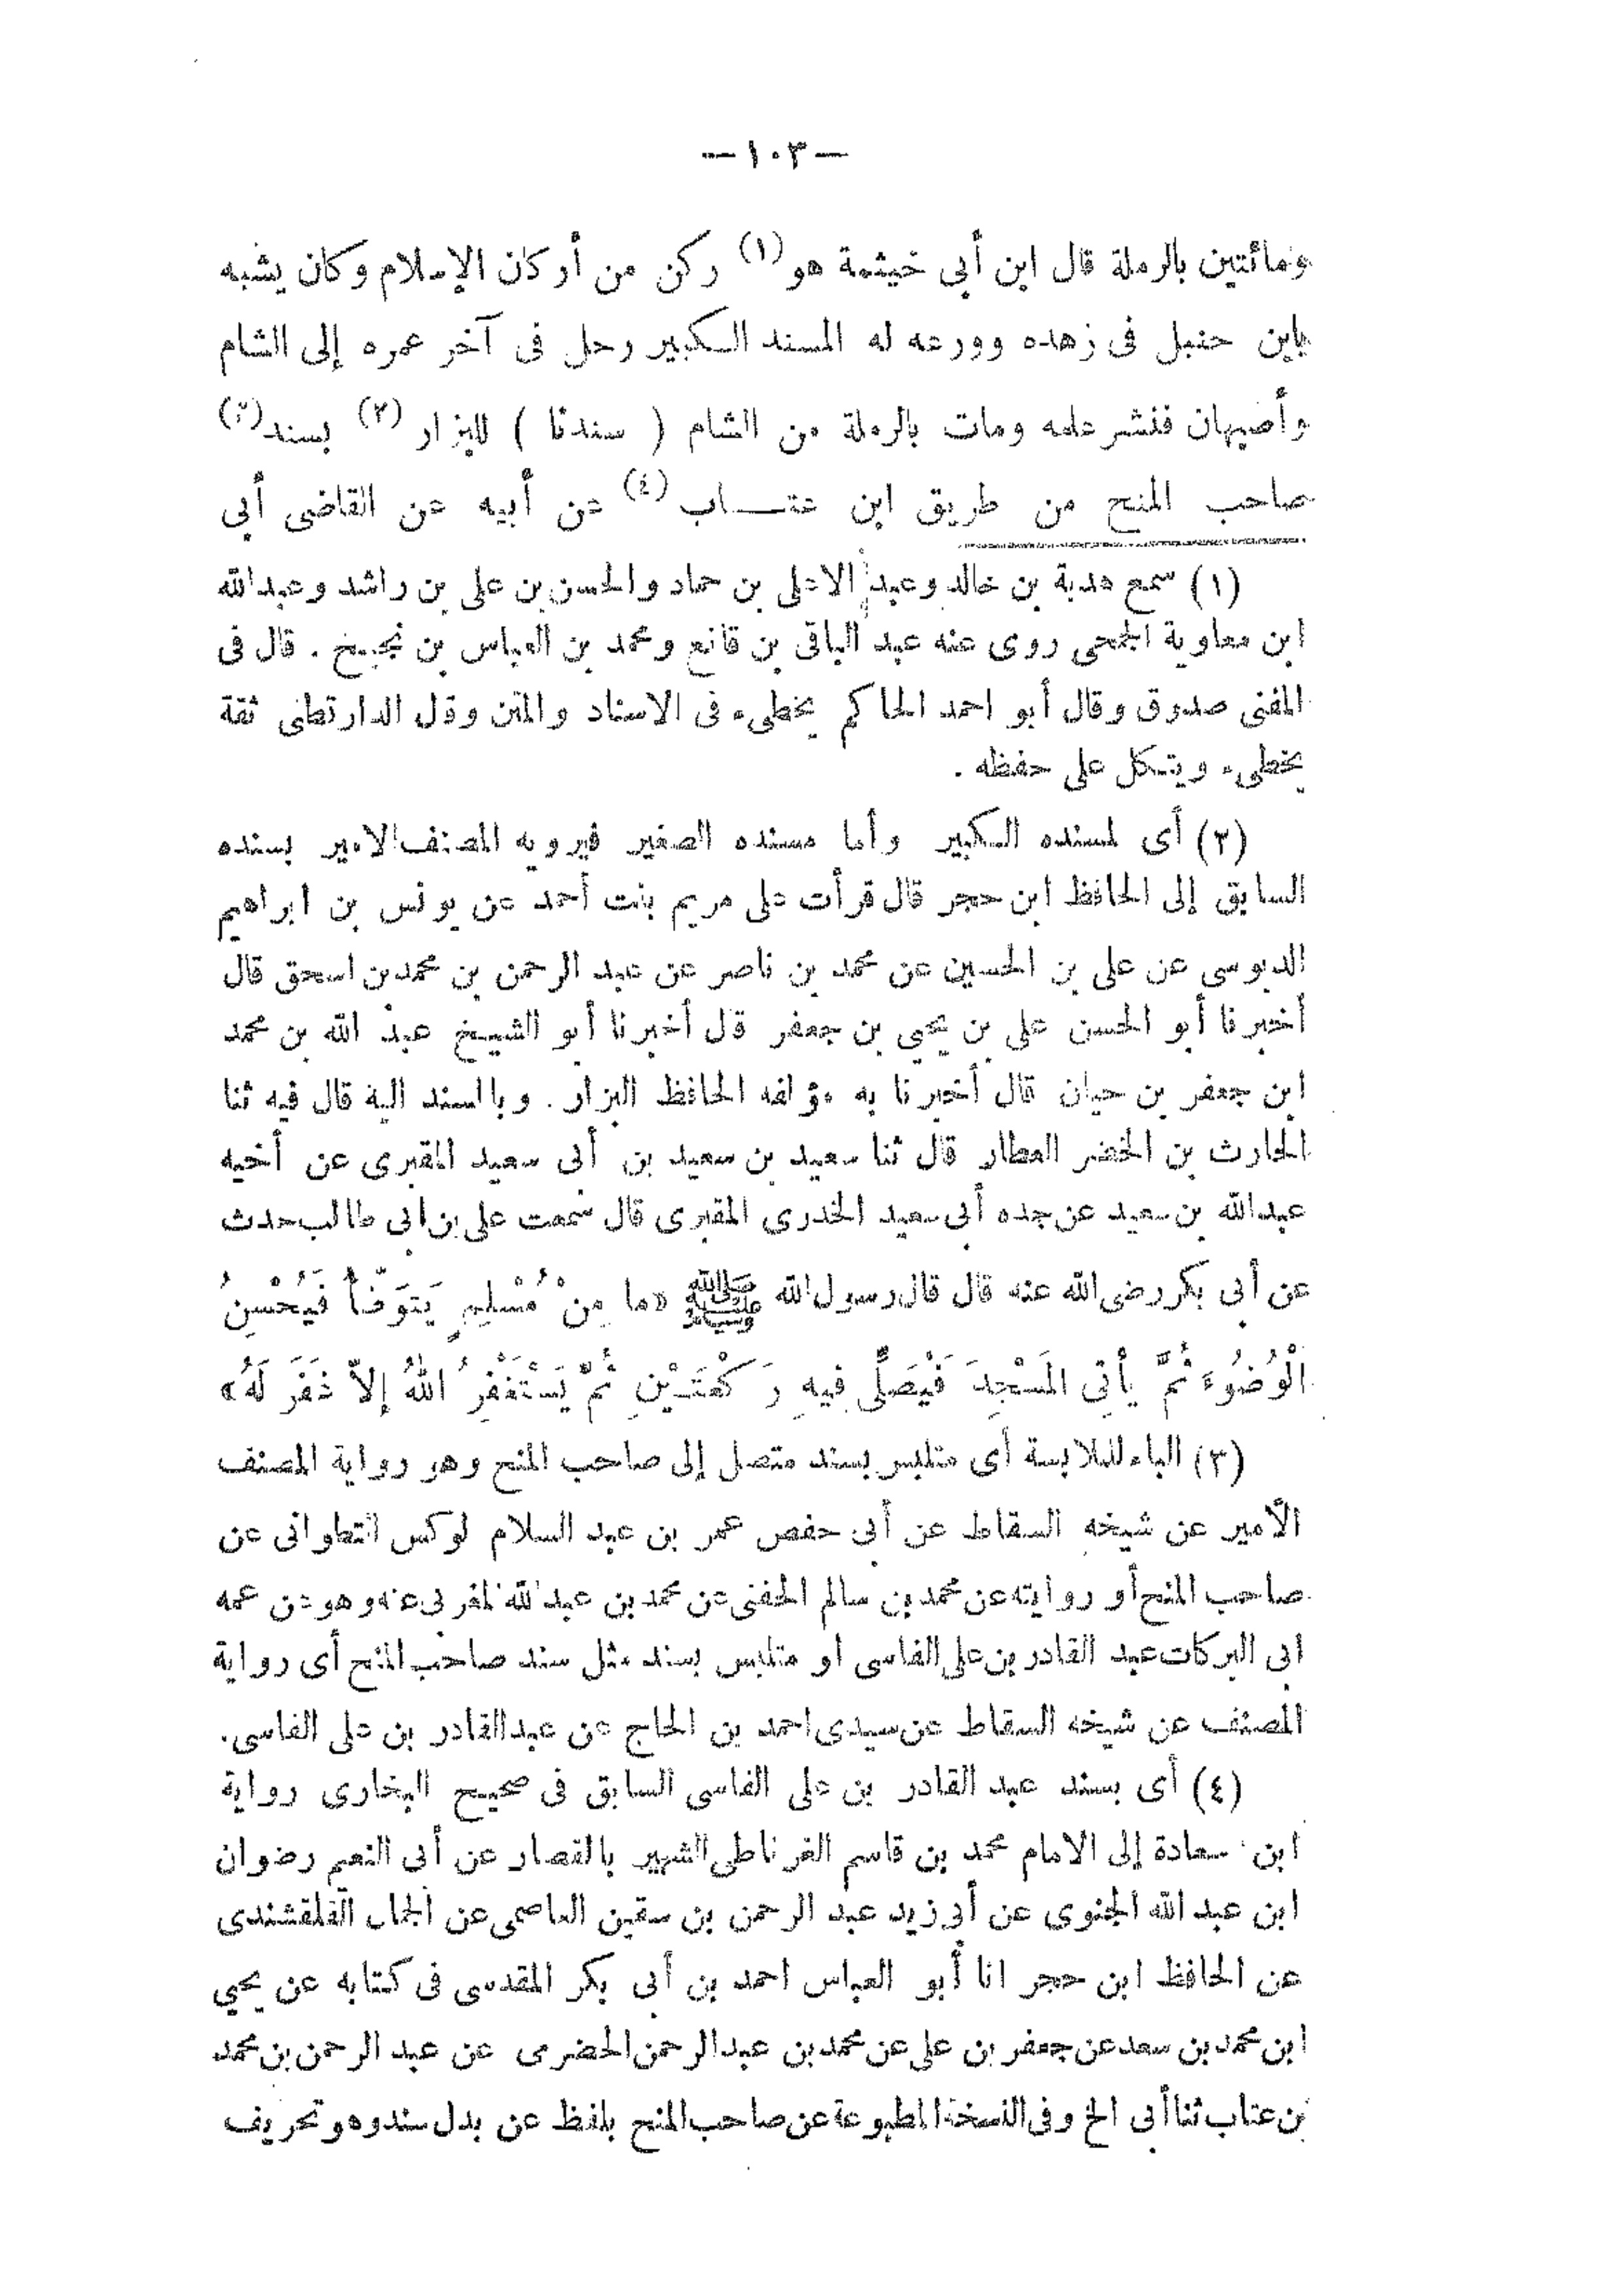 — ١٠٣ —
ومائتين بالرملة قال ابن أبى خيثمة هو (١) ركن من أركان الإسلام وكان يشبه
بابن حنبل فى زهده وورعه له المسند الكبير رحل فى آخر عمره إلى الشام
وأصبهان فنشر علمه ومات بالرملة من الشام ( سندنا ) للبزار (٢) بسند (٣)
صاحب المنح من طريق ابن عتــــاب (٤) عن أبيه عن القاضى أبى
(١) سمع هدبة بن خالد وعبد الاعلى بن حماد والحسن بن على بن راشد وعبد الله
ابن معاوية الجمحى روى عنه عبد الباقى بن قانع ومحمد بن العباس بن نجيح . قال فى
المغنى صدوق وقال أبو احمد الحاكم يخطىء فى الاسناد والمتن وقال الدارقطنى ثقة
يخطىء ويتكل على حفظه .
(٢) أى لمسنده الكبير وأما مسنده الصغير فيرويه المصنف الامير بسنده
السابق إلى الحافظ ابن حجر قال قرأت على مريم بنت أحمد عن يونس بن ابراهيم
الدبوسى عن على بن الحسين عن محمد بن ناصر عن عبد الرحمن بن محمد بن اسحق قال
أخبرنا أبو الحسن على بن يحيى بن جعفر قال أخبرنا أبو الشيخ عبد الله بن محمد
ابن جعفر بن حيان قال أخبرنا به مؤلفه الحافظ البزار . وبالسند اليه قال فيه ثنا
الحارث بن الخضر العطار قال ثنا سعيد بن سعيد بن أبى سعيد المقبرى عن أخيه
عبد الله بن سعيد عن جده أبى سعيد الخدرى المقبرى قال سمعت على بن ابى طالب حدث
عن أبى بكر رضى الله عنه قال قال رسول الله ﷺ «ما مِنْ مُسْلِمٍ يَتَوَضّأُ فَيُحْسِنُ
الْوُضُوءَ ثُمَّ يأتِى المَسْجِدَ فَيُصَلِّى فِيهِ رَكْعَتَيْنِ ثُمّ يَسْتَغْفِرُ اللهَ إلاّ غَفَرَ لَهُ»
(٣) الباء للملابسة أى متلبس بسند متصل إلى صاحب المنح وهو رواية المصنف
الأمير عن شيخه السقاط عن أبى حفص عمر بن عبد السلام لوكس التطوانى عن
صاحب المنح أو روايته عن محمد بن سالم الحفنى عن محمد بن عبد الله المغربى عنه وهو عن عمه
ابى البركات عبد القادر بن على الفاسى او متلبس بسند مثل سند صاحب المنح أى رواية
المصنف عن شيخه السقاط عن سيدى احمد بن الحاج عن عبد القادر بن على الفاسى .
(٤) أى بسند عبد القادر بن على الفاسى السابق فى صحيح البخارى رواية
ابن سعادة إلى الامام محمد بن قاسم الغرناطى الشهير بالقصار عن أبى النعيم رضوان
ابن عبد الله الجنوى عن أبى زيد عبد الرحمن بن سقين العاصمى عن الجمال القلقشندى
عن الحافظ ابن حجر انا أبو العباس احمد بن أبى بكر المقدسى فى كتابه عن يحيى
ابن محمد بن سعد عن جعفر بن على عن محمد بن عبد الرحمن الحضرمى عن عبد الرحمن بن محمد
بن عتاب ثنا أبى الخ وفى النسخة المطبوعة عن صاحب المنح بلفظ عن بدل سند وهو تحريف